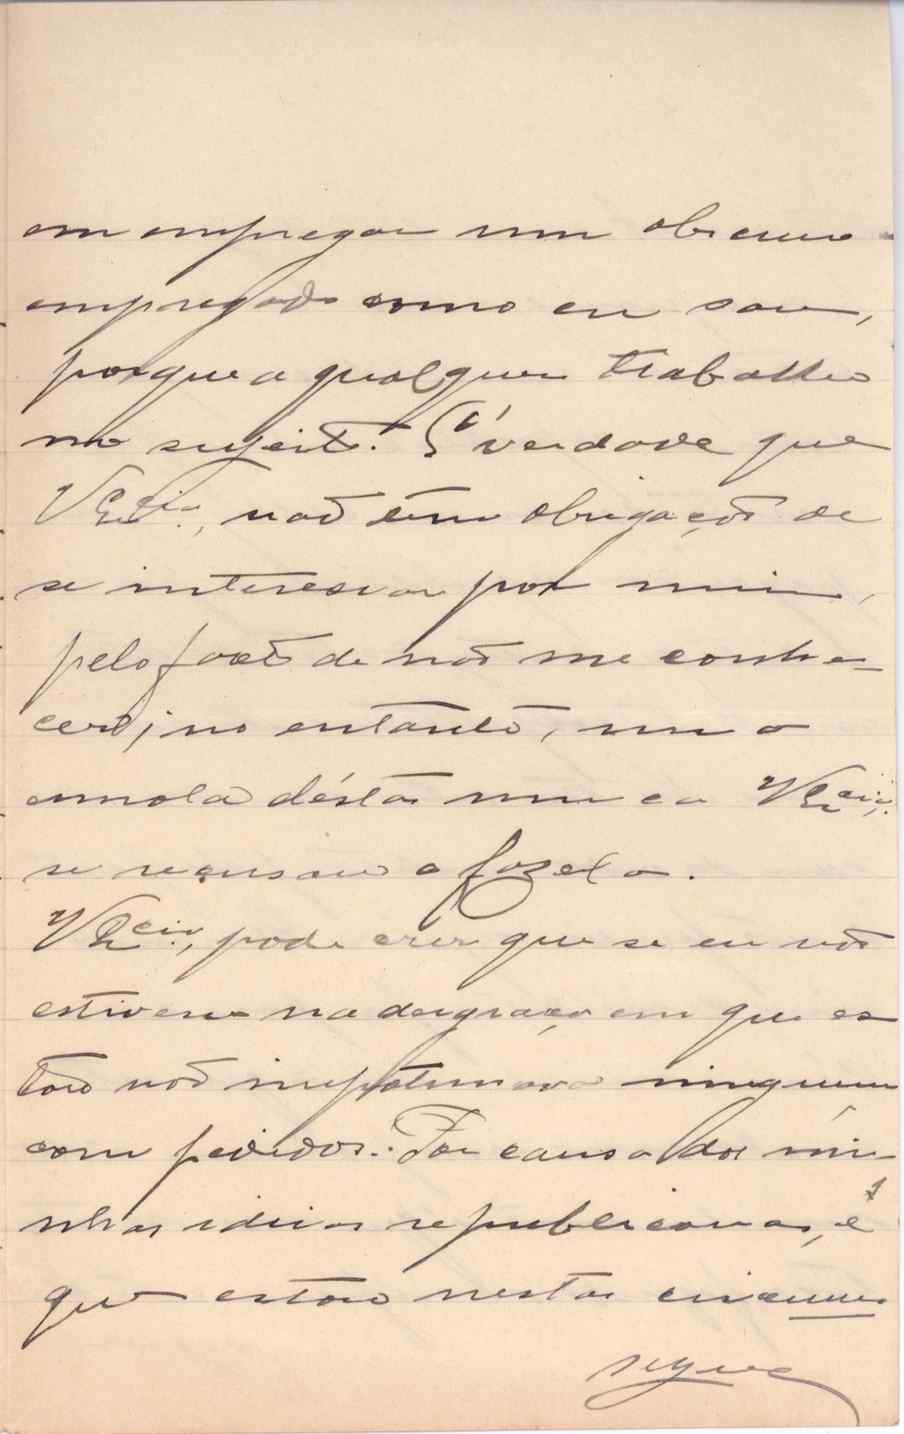 em empregar um obscuro
empregado como eu sou,
porque a qualquer trabalho
me sujeito. É verdade que
V Excia., não tem obrigação de
se interessar por mim,
pelo facto de não me conhe-
cer; no entanto, uma
esmola désta nunca V Excia.
se recusará a fazela.
V Excia., pode crer que se eu não
estivesse na desgraça em que es
tou não inportunava ninguem
com pedidos. Por causa das mi-
nhas ideias republicanas, é
que estou nestas circuns
segue